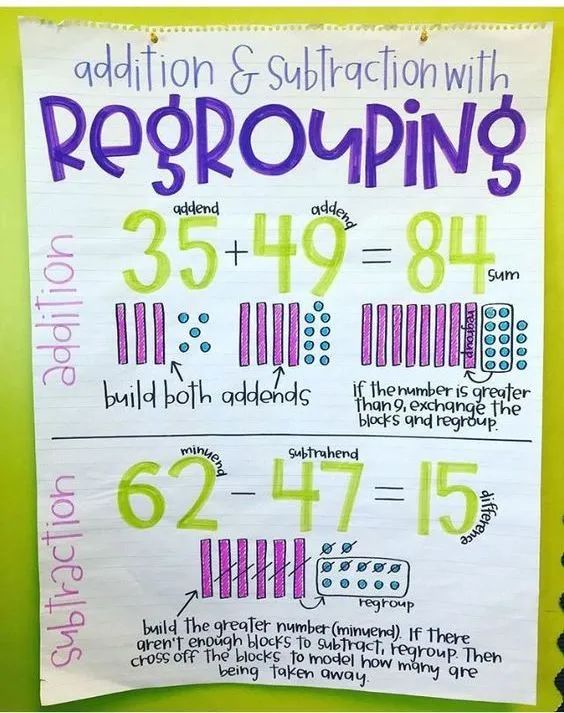 addition & subtraction with
REGROUPING
addition
addend addend
35 + 49 = 84
sum
regroup
build both addends
if the number is greater
than 9, exchange the
blocks and regroup.
subtraction
minuend subtrahend
62 - 47 = 15
difference
regroup
build the greater number (minuend). If there
aren't enough blocks to subtract, regroup. Then
cross off the blocks to model how many are
being taken away.